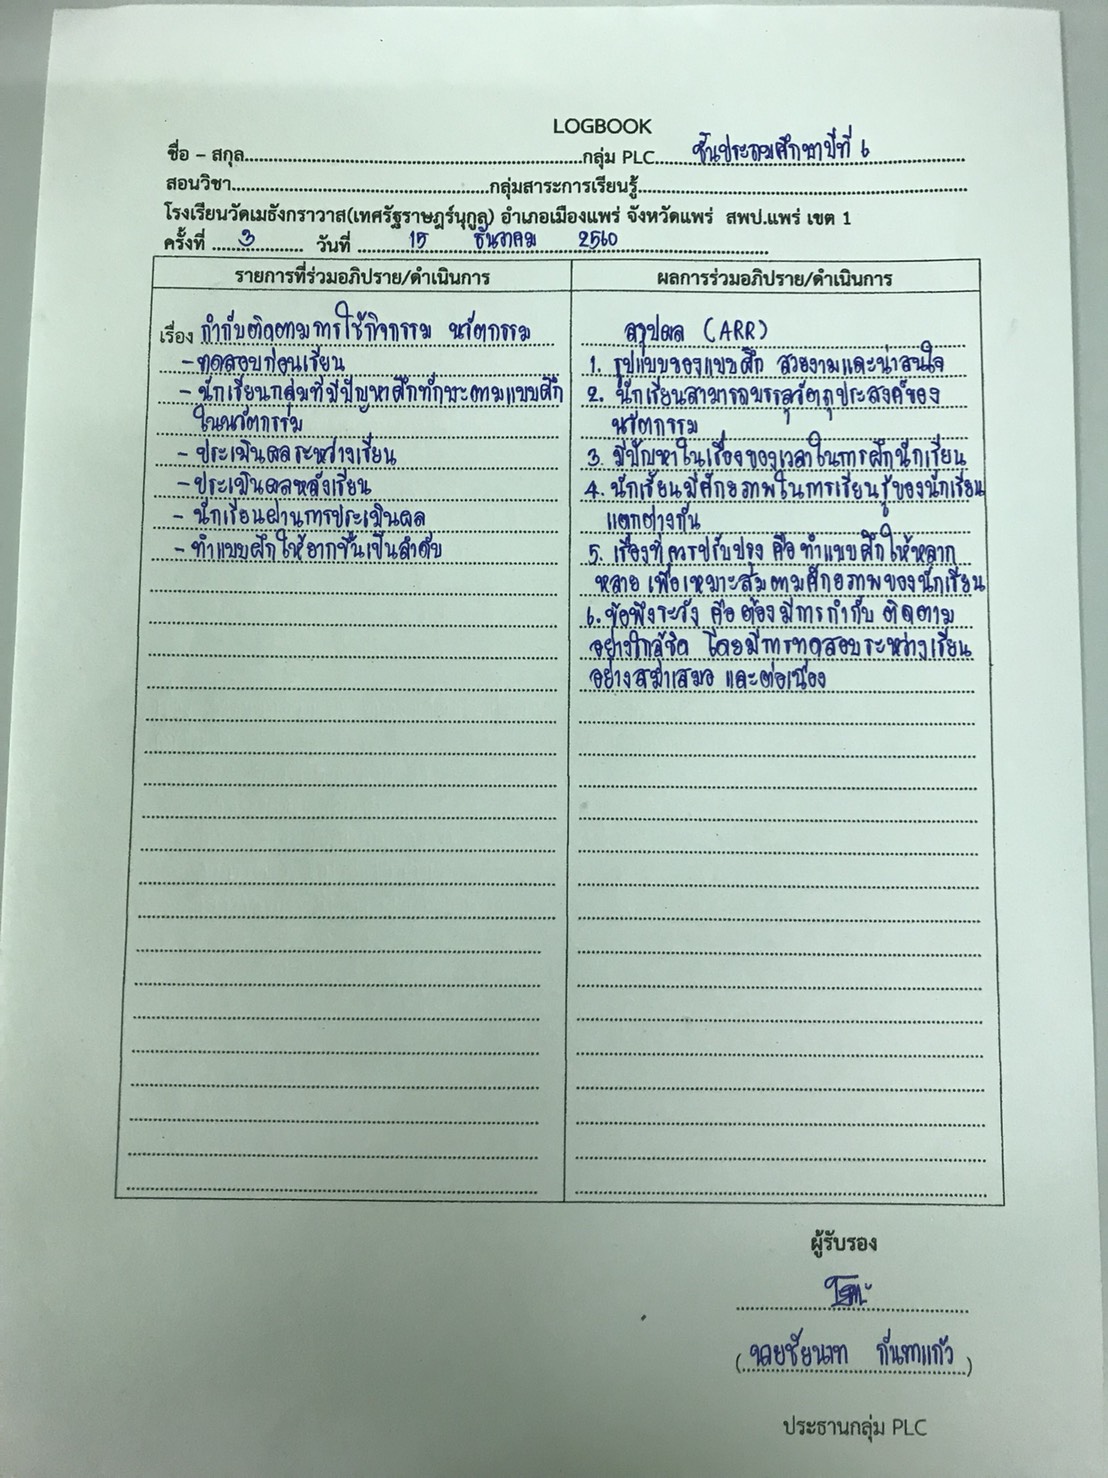 LOGBOOK
ชื่อ – สกุล..........กลุ่ม PLC ชั้นประถมศึกษาปีที่ 6
สอนวิชา..........กลุ่มสาระการเรียนรู้..........
โรงเรียนวัดเมธังกราวาส(เทศรัฐราษฎร์นุกูล) อำเภอเมืองแพร่ จังหวัดแพร่ สพป.แพร่ เขต 1
ครั้งที่ 3 วันที่ 15 ธันวาคม 2560
รายการที่ร่วมอภิปราย/ดำเนินการ
เรื่อง กำกับติดตามการใช้กิจกรรม นวัตกรรม
- ทดสอบก่อนเรียน
- นักเรียนกลุ่มที่มีปัญหาฝึกทักษะตามแบบฝึก
ในนวัตกรรม
- ประเมินผลระหว่างเรียน
- ประเมินผลหลังเรียน
- นักเรียนผ่านการประเมินผล
- ทำแบบฝึกให้ยากขึ้นเป็นลำดับ
ผลการร่วมอภิปราย/ดำเนินการ
สรุปผล (ARR)
1. รูปแบบของแบบฝึก สวยงามและน่าสนใจ
2. นักเรียนสามารถบรรลุวัตถุประสงค์ของ
นวัตกรรม
3. มีปัญหาในเรื่องของเวลาในการฝึกนักเรียน
4. นักเรียนมีศักยภาพในการเรียนรู้ของนักเรียน
แตกต่างกัน
5. เรื่องที่ควรปรับปรุง คือ ทำแบบฝึกให้หลาก
หลาย เพื่อเหมาะสมตามศักยภาพของนักเรียน
6. ข้อพึงระวัง คือ ต้องมีการกำกับ ติดตาม
อย่างใกล้ชิด โดยมีการทดสอบระหว่างเรียน
อย่างสม่ำเสมอ และต่อเนื่อง
ผู้รับรอง
(นายชัยนาท กันทาแก้ว)
ประธานกลุ่ม PLC